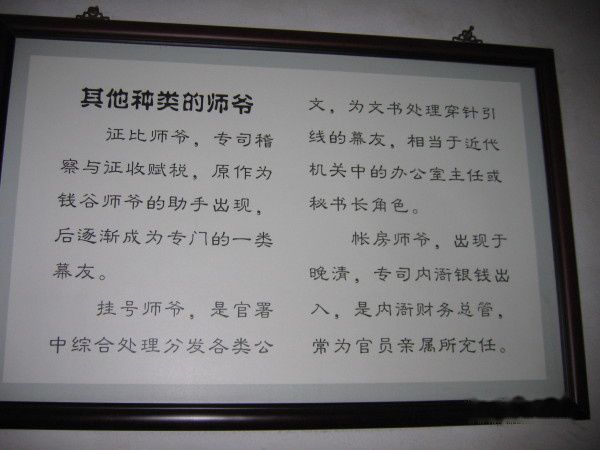 其他种类的师爷
证比师爷，专司稽
察与征收赋税，原作为
钱谷师爷的助手出现，
后逐渐成为专门的一类
幕友。
挂号师爷，是官署
中综合处理分发各类公
文，为文书处理穿针引
线的幕友，相当于近代
机关中的办公室主任或
秘书长角色。
帐房师爷，出现于
晚清，专司内衙银钱出
入，是内衙财务总管，
常为官员亲属所充任。